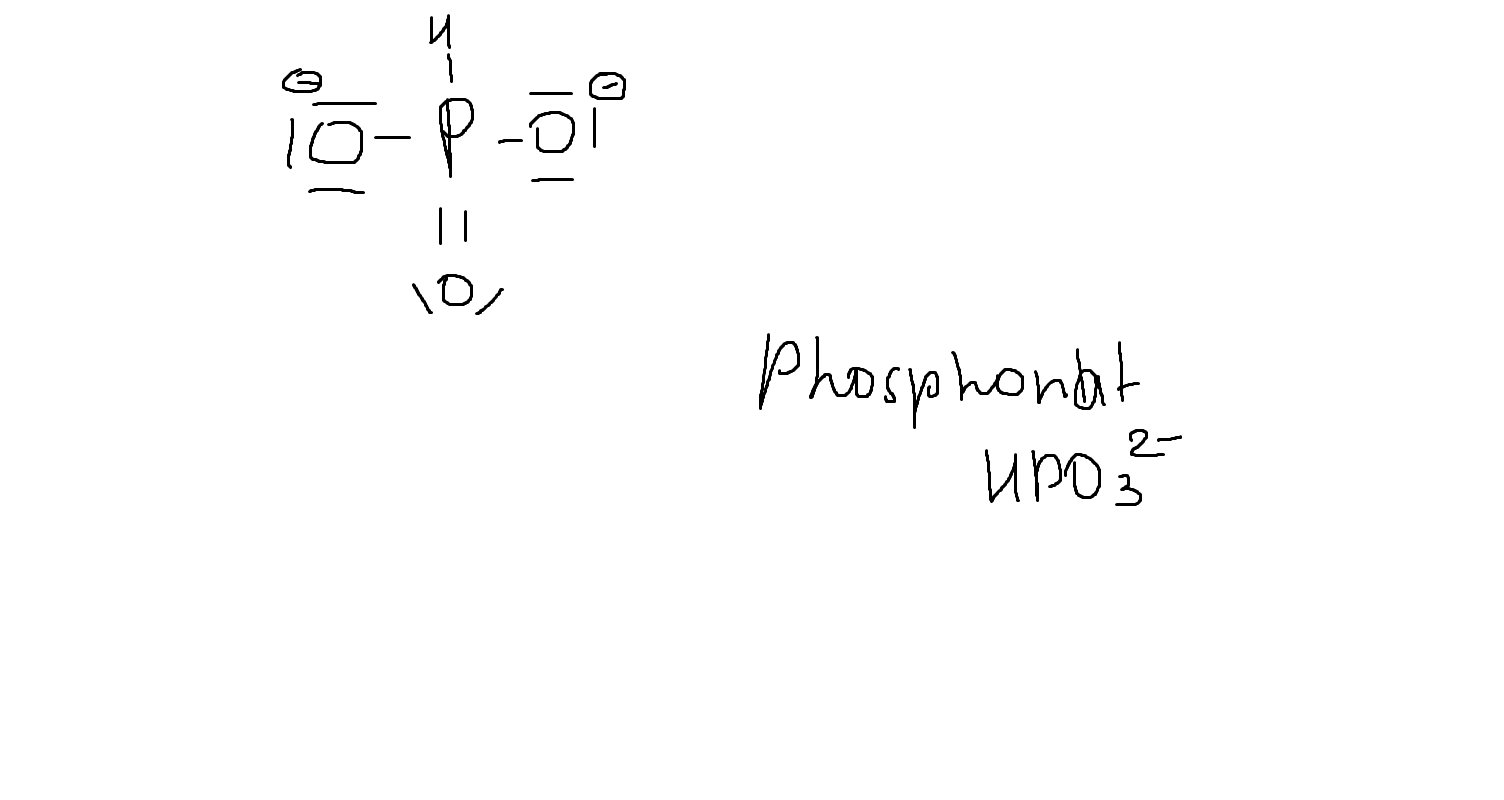 H
⊖ ⊖
|O – P – O|
||
\O/
Phosphonat
HPO₃²⁻